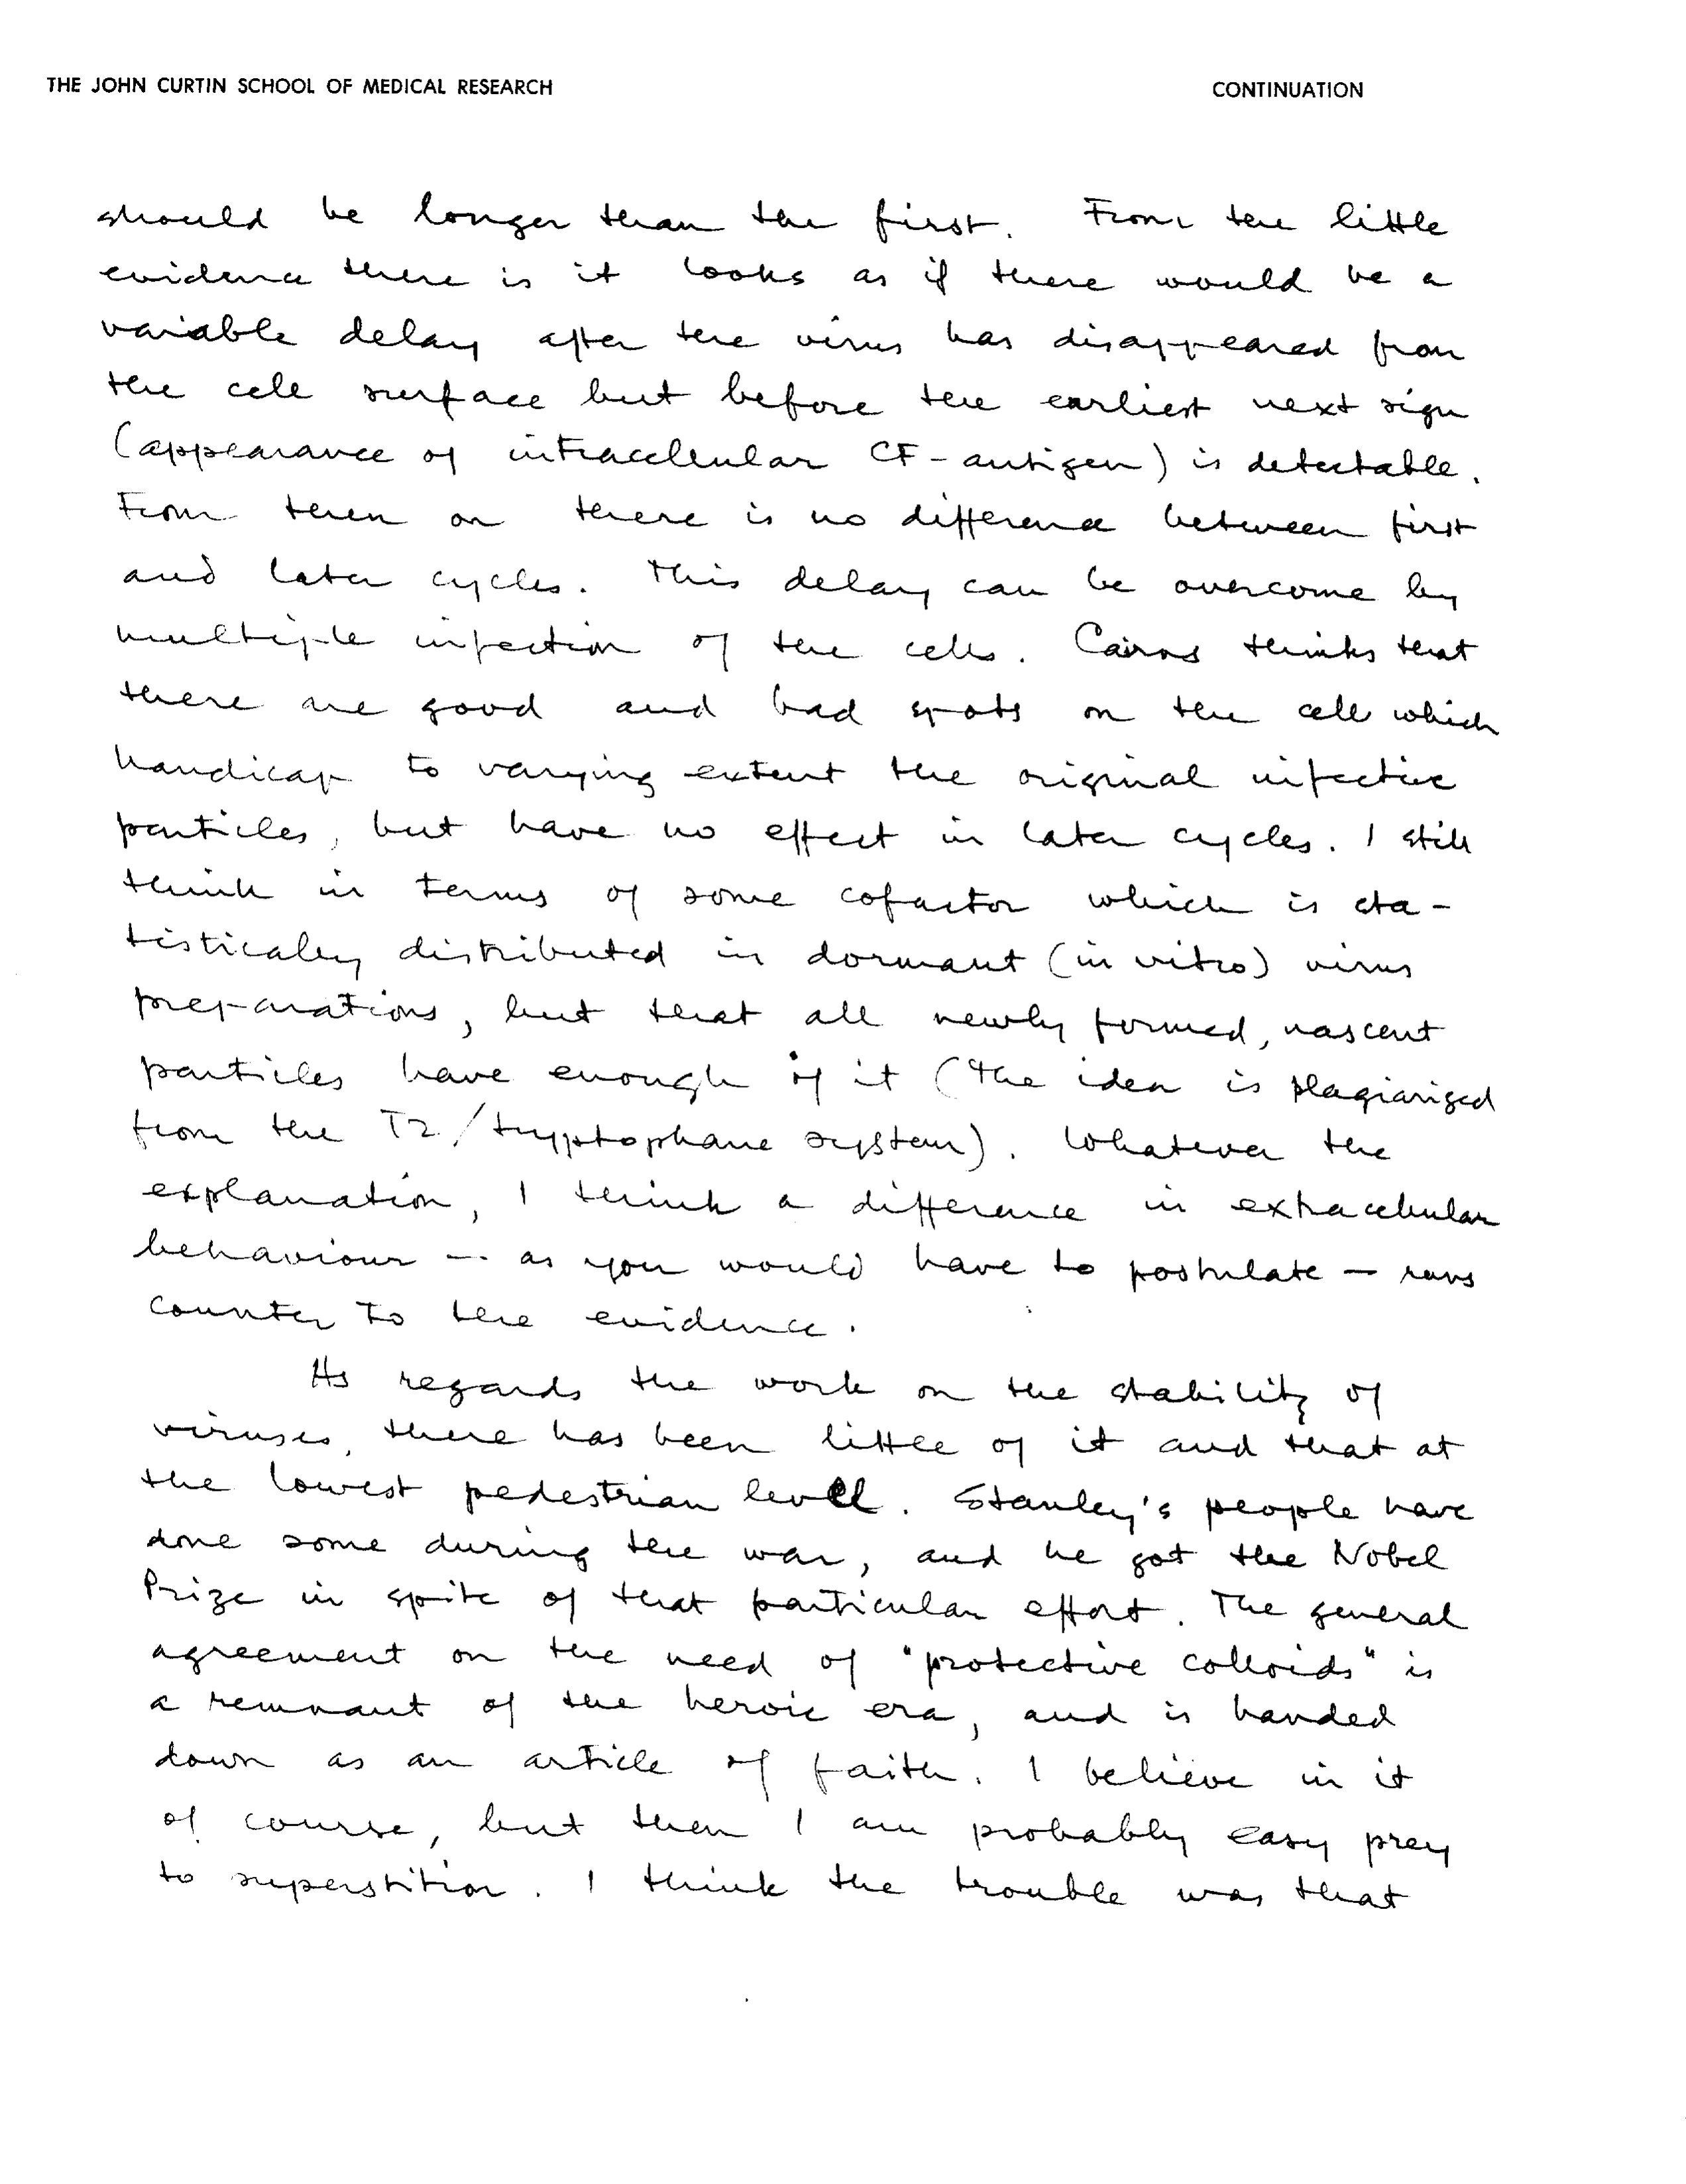 THE JOHN CURTIN SCHOOL OF MEDICAL RESEARCH CONTINUATION
should be longer than the first. From the little
evidence there is it looks as if there would be a
variable delay after the virus has disappeared from
the cell surface but before the earliest next sign
(appearance of intracellular CF-antigen) is detectable.
From then on there is no difference between first
and later cycles. This delay can be overcome by
multiple infection of the cells. Cairns thinks that
there are good and bad spots on the cell which
handicap to varying extent the original infective
particles, but have no effect in later cycles. I still
think in terms of some cofactor which is sta-
tistically distributed in dormant (in vitro) virus
preparations, but that all newly formed, nascent
particles have enough of it (the idea is plagiarised
from the T2/tryptophane system). Whatever the
explanation, I think a difference in extracellular
behaviour — as you would have to postulate — runs
counter to the evidence.
As regards the work on the stability of
viruses, there has been little of it and that at
the lowest pedestrian level. Stanley's people have
done some during the war, and he got the Nobel
Prize in spite of that particular effort. The general
agreement on the need of "protective colloids" is
a remnant of the heroic era, and is handed
down as an article of faith. I believe in it
of course, but then I am probably easy prey
to superstition. I think the trouble was that